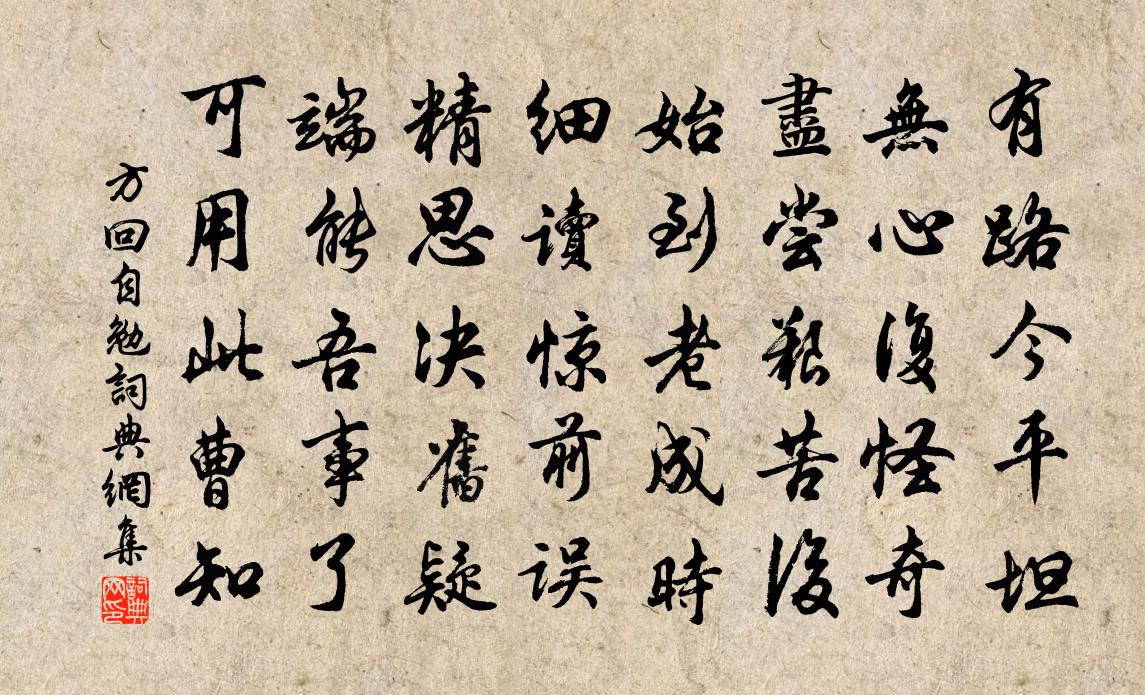 有路今平坦
無心復怪奇
盡尝艱苦後
始到老成時
细讀惊前误
精思决舊疑
端能吾事了
可用此曹知
方回自勉詞典網集
詞典网印